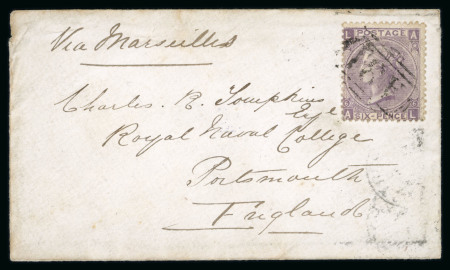 Via Marseilles
L POSTAGE A
Charles. R. Tompkins
Esqr
Royal Naval College
Portsmouth
England
A SIX-PENCE L